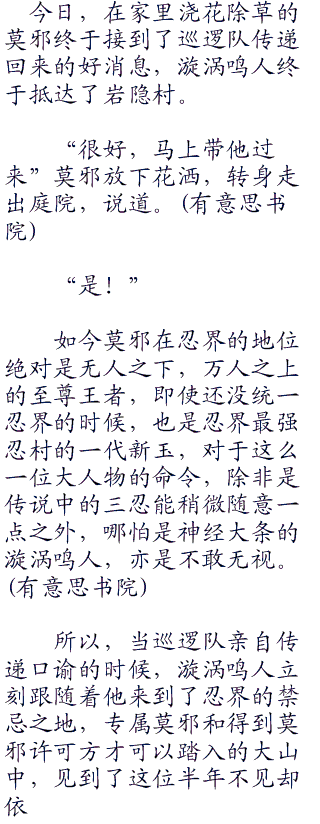 今日，在家里浇花除草的
莫邪终于接到了巡逻队传递
回来的好消息，漩涡鸣人终
于抵达了岩隐村。
“很好，马上带他过
来”莫邪放下花洒，转身走
出庭院，说道。(有意思书
院)
“是！”
如今莫邪在忍界的地位
绝对是无人之下，万人之上
的至尊王者，即使还没统一
忍界的时候，也是忍界最强
忍村的一代新玉，对于这么
一位大人物的命令，除非是
传说中的三忍能稍微随意一
点之外，哪怕是神经大条的
漩涡鸣人，亦是不敢无视。
(有意思书院)
所以，当巡逻队亲自传
递口谕的时候，漩涡鸣人立
刻跟随着他来到了忍界的禁
忌之地，专属莫邪和得到莫
邪许可方才可以踏入的大山
中，见到了这位半年不见却
依